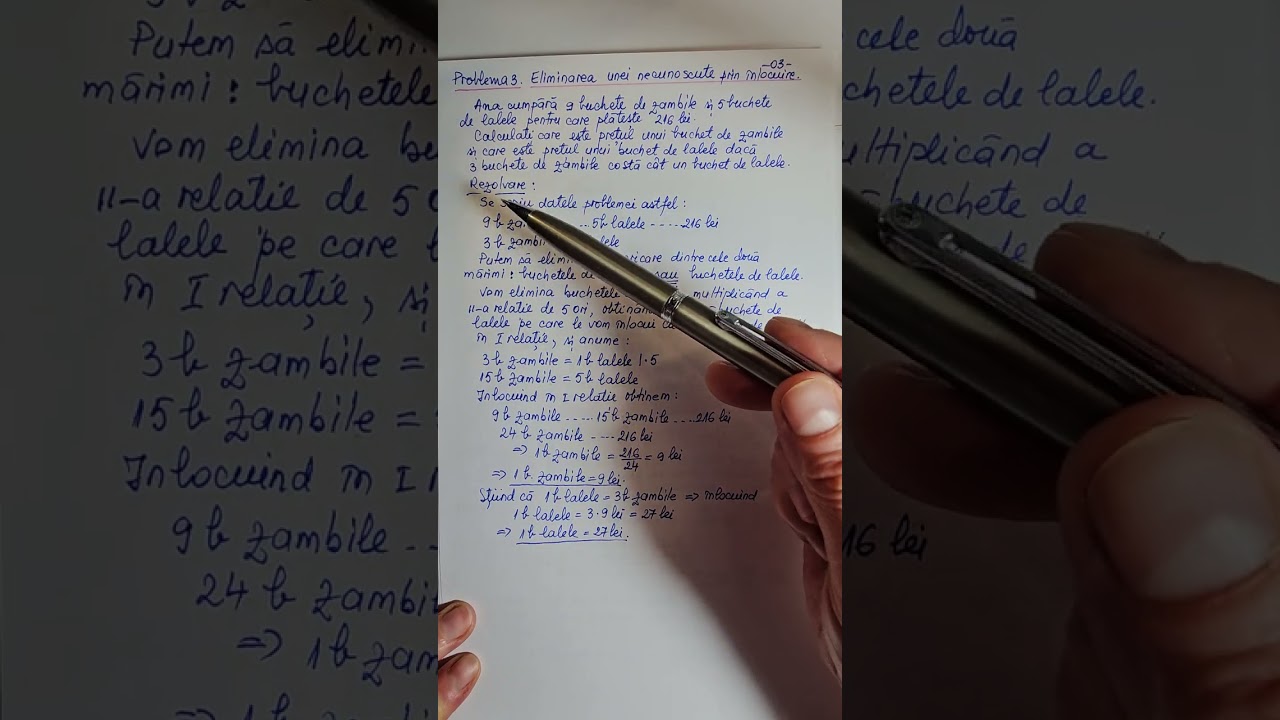 -03-
Problema 3. Eliminarea unei necunoscute prin înlocuire.
Ana cumpără 9 buchete de zambile și 5 buchete
de lalele pentru care plătește 216 lei.
Calculati care este prețul unui buchet de zambile
și care este prețul unui buchet de lalele dacă
3 buchete de zambile costă cât un buchet de lalele.
Rezolvare:
Se scriu datele problemei astfel:
9 b ... 5 b lalele ----- 216 lei
3 b zambil
Putem să elimi dintre cele două
mărimi: buchetele de sau buchetele de lalele.
Vom elimina buchetele multiplicând a
II-a relație de 5 ori, buchete de
lalele pe care le vom înlocui
în I relație, și anume:
3 b zambile = 1 b lalele | · 5
15 b zambile = 5 b lalele
Înlocuind în I relatie obtinem:
9 b zambile ..... 15 b zambile .... 216 lei
24 b zambile ---- 216 lei
=> 1 b zambile = 216/24 = 9 lei
=> 1 b zambile = 9 lei.
Știind că 1 b lalele = 3 b zambile => înlocuind
1 b lalele = 3 · 9 lei = 27 lei
=> 1 b lalele = 27 lei.